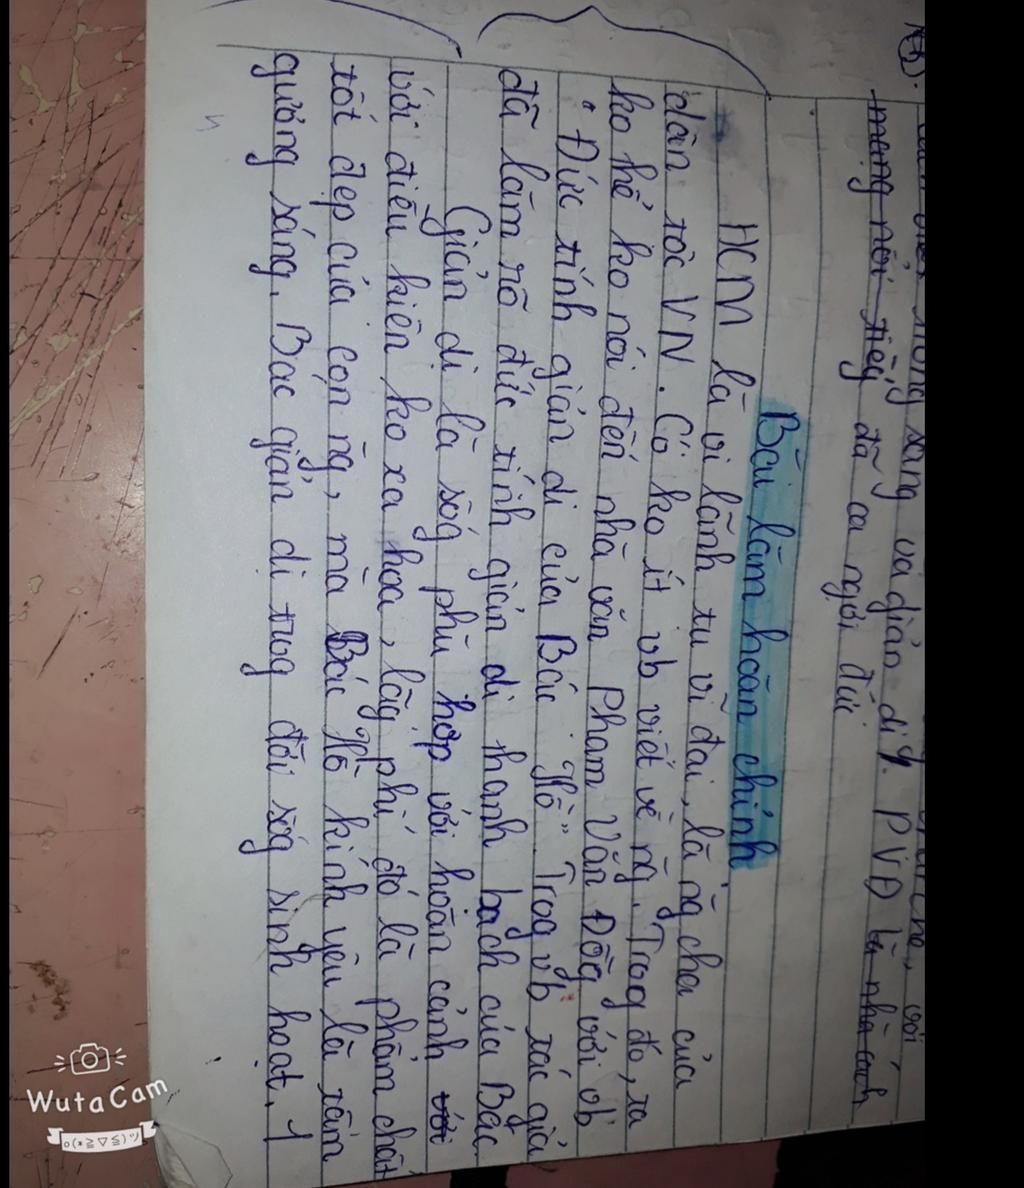 sáng và giản dị". PVĐ là nhà cách
mạng nổi tiếg đã ca ngợi đức
Bài làm hoàn chỉnh
HCM là vị lãnh tụ vĩ đại, là ng̀ cha của
dân tộc VN. Có ko ít vb viết về ng̀. Trog đó, ta
ko hể ko nói đến nhà văn Phạm Văn Đồg với vb
"Đức tính giản dị của Bác Hồ". Trog vb tác giả
đã làm rõ đức tính giản dị thanh bạch của Bác.
Giản dị là sốg phù hợp với hoàn cảnh với
với điều kiện ko xa hoa, lãg phí đó là phẩm chất
tốt đẹp của con ng̀, mà Bác Hồ kính yêu là tấm
gương sáng. Bác giản dị trog đời sốg sinh hoạt. 1
WutaCam